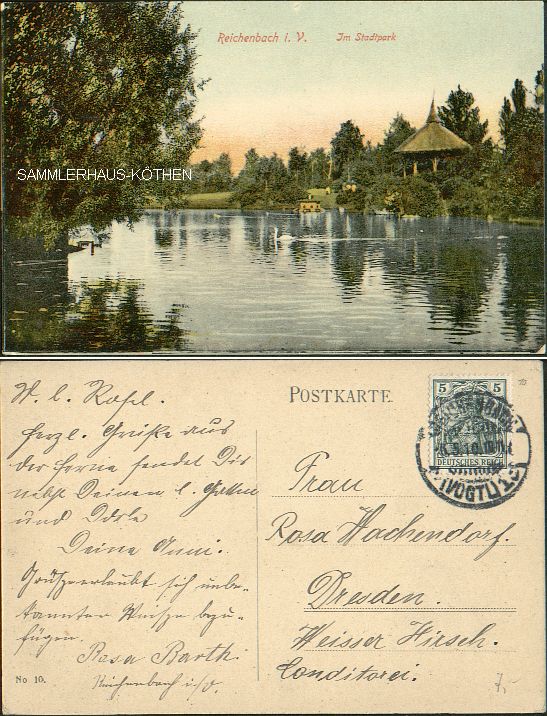 Reichenbach i. V. Im Stadtpark
SAMMLERHAUS-KÖTHEN
M. l. Rosel.
Herzl. Grüße aus
der Ferne sendet Dir
nebst Deinem l. Gatten
und
Deine Anni.
Grüße erlaubt sich unbe-
kannter Weise beizu-
fügen.
Rosa Barth.
Reichenbach i/V.
No 10.
POSTKARTE
5 5
DEUTSCHES REICH
(VOGTL)
Frau
Rosa Wachendorf.
Dresden.
Weisser Hirsch.
Conditorei.
7,-